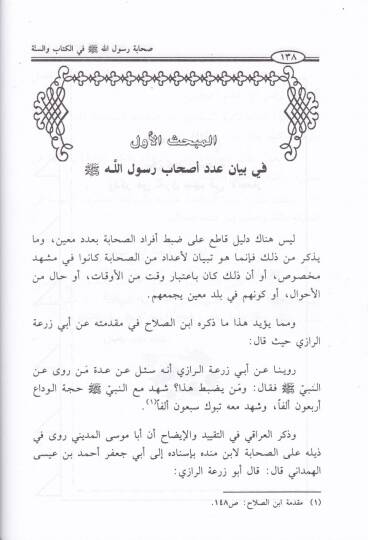 صحابة رسول الله ﷺ في الكتاب والسنة
١٣٨
المبحث الأول
في بيان عدد أصحاب رسول اللّـه ﷺ
ليس هناك دليل قاطع على ضبط أفراد الصحابة بعدد معين، وما
يذكر من ذلك فإنما هو تبيان لأعداد من الصحابة كانوا في مشهد
مخصوص، أو أن ذلك كان باعتبار وقت من الأوقات، أو حال من
الأحوال، أو كونهم في بلد معين يجمعهم.
ومما يؤيد هذا ما ذكره ابن الصلاح في مقدمته عن أبي زرعة
الرازي حيث قال:
روينا عن أبي زرعة الرازي أنه سئل عن عدة مَن روى عن
النبيّ ﷺ فقال: ومَن يضبط هذا؟ شهد مع النبيّ ﷺ حجة الوداع
أربعون ألفاً، وشهد معه تبوك سبعون ألفاً(١).
وذكر العراقي في التقييد والإيضاح أن أبا موسى المديني روى في
ذيله على الصحابة لابن منده بإسناده إلى أبي جعفر أحمد بن عيسى
الهمداني قال: قال أبو زرعة الرازي:
(١) مقدمة ابن الصلاح: ص١٤٨.